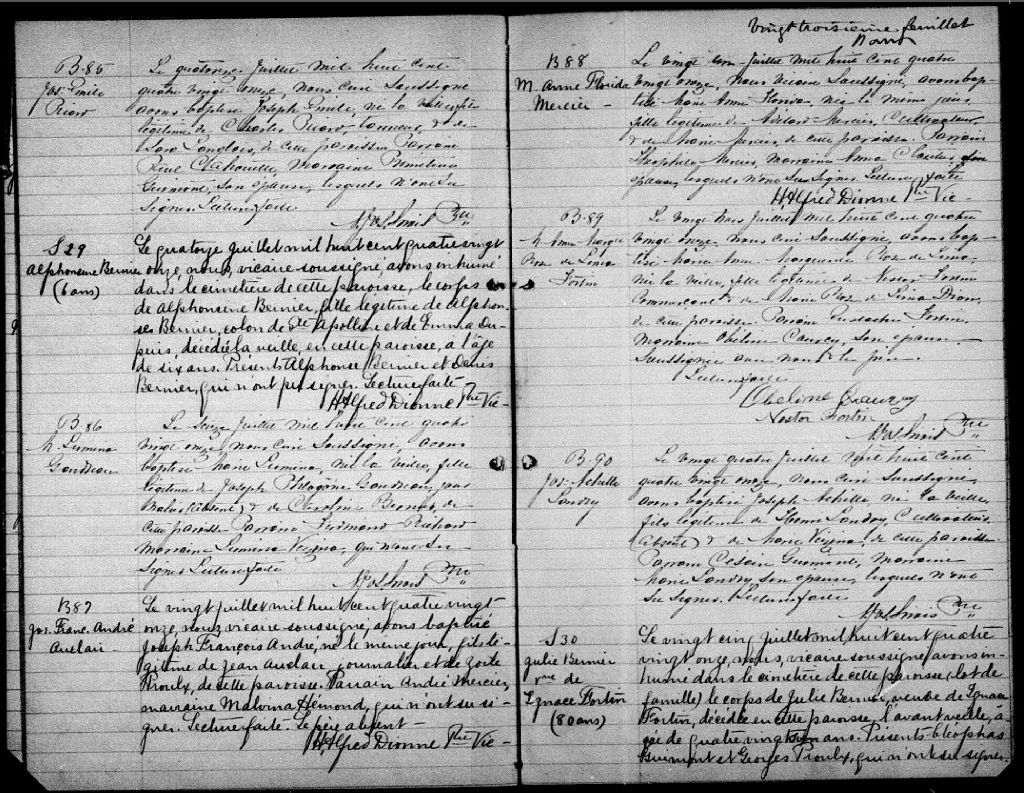 B-85
Jos. Emile
Picard
Le quatorze Juillet mil huit cent
quatre vingt onze, nous curé soussigné
avons baptisé Joseph Emile, né la veille, fils
légitime de Charles Picard, tanneur, & de
Sara Langlois, de cette paroisse. Parrain
Marraine
Guimont, son épouse, lesquels n'ont su
signer. Lecture faite
Ptre
S 29
Alphonsine Bernier
(6 ans)
Le quatorze juillet mil huit cent quatre vingt
onze, nous, vicaire soussigné avons inhumé
dans le cimetière de cette paroisse, le corps
de alphonsine Bernier, fille légitime de alphon-
se Bernier, colon de Ste Apolline et de Emma Du-
puis, décédée la veille, en cette paroisse, à l'âge
de six ans. Présents Alphonse Bernier et Denis
Bernier, qui n'ont pu signer. Lecture faite
H Alfred Dionne Ptre Vic-
B-86
M. Lumina
Gaudreau
Le seize Juillet mil huit cent quatre
vingt onze, nous curé soussigné, avons
baptisé Marie Lumina, née la veille, fille
légitime de Joseph Philogône Gaudreau, jour
nalier (absent) & de Caroline Bernier, de
cette paroisse. Parrain Ferdinand Richard
Marraine Lumina Vézina, qui n'ont su
signer. Lecture faite
Ptre
B87
Jos. Franc. André
Auclair
Le vingt juillet mil huit cent quatre vingt
onze, nous, vicaire soussigné, avons baptisé
Joseph François André, né le même jour, fils lé-
gitime de Jean Auclair journalier et de Zoïle
Proulx, de cette paroisse. Parrain André Mercier,
marraine Malvina Hémond, qui n'ont su si-
gner. Lecture faite. Le père absent-
H Alfred Dionne Ptre Vic-
Vingt troisième feuillet
B 88
M. Anne Florida
Mercier-
Le vingt un Juillet mil huit cent quatre
vingt onze, nous vicaire soussigné, avons bap-
tisé Marie Anne Florida, née le même jour,
fille légitime de Adélard Mercier, Cultivateur,
& de Marie Mercier, de cette paroisse. Parrain
Théophile Mercier, Marraine Anna Cloutier, son
épouse, lesquels n'ont su signer. Lecture faite
H Alfred Dionne Ptre Vic-
B-89
M. Anna Marg.
Roz de Lima
Fortin
Le vingt trois Juillet mil huit cent quatre
vingt onze, nous curé soussigné, avons bap-
tisé Marie Anna Marguerite Roz de Lima,
née la veille, fille légitime de Nestor Fortin
Commerçant & de Marie Roz de Lima Dion,
de cette paroisse. Parrain Eustache Fortin,
Marraine Obeline son épouse
Soussignée avec nous & le père.
Lecture faite
Obeline
Nestor Fortin
Ptre
B-90
Jos. Achille
Landry
Le vingt quatre Juillet mil huit cent
quatre vingt onze, nous curé soussigné,
avons baptisé Joseph Achille né la veille,
fils légitime de Landry, Cultivateur,
(absent) & de Marie Vézina, de cette paroisse.
Parrain Césair Guimont, Marraine
Marie Landry son épouse, lesquels n'ont
su signer. Lecture faite
Ptre
S30
Julie Bernier
vve de
Ignace Fortin
(80 ans)
Le vingt cinq juillet mil huit cent quatre
vingt onze, nous, vicaire soussigné, avons in-
humé dans le cimetière de cette paroisse (lot de
famille) le corps de Julie Bernier, veuve de Ignace
Fortin, décédée en cette paroisse, l'avant veille, â-
gée de quatre vingts ans. Présents Cléophas
Guimont et Georges Proulx, qui n'ont su signer.